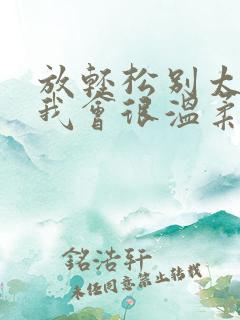 放轻松别太
我会很温柔
銘浩轩
未经同意禁止转载